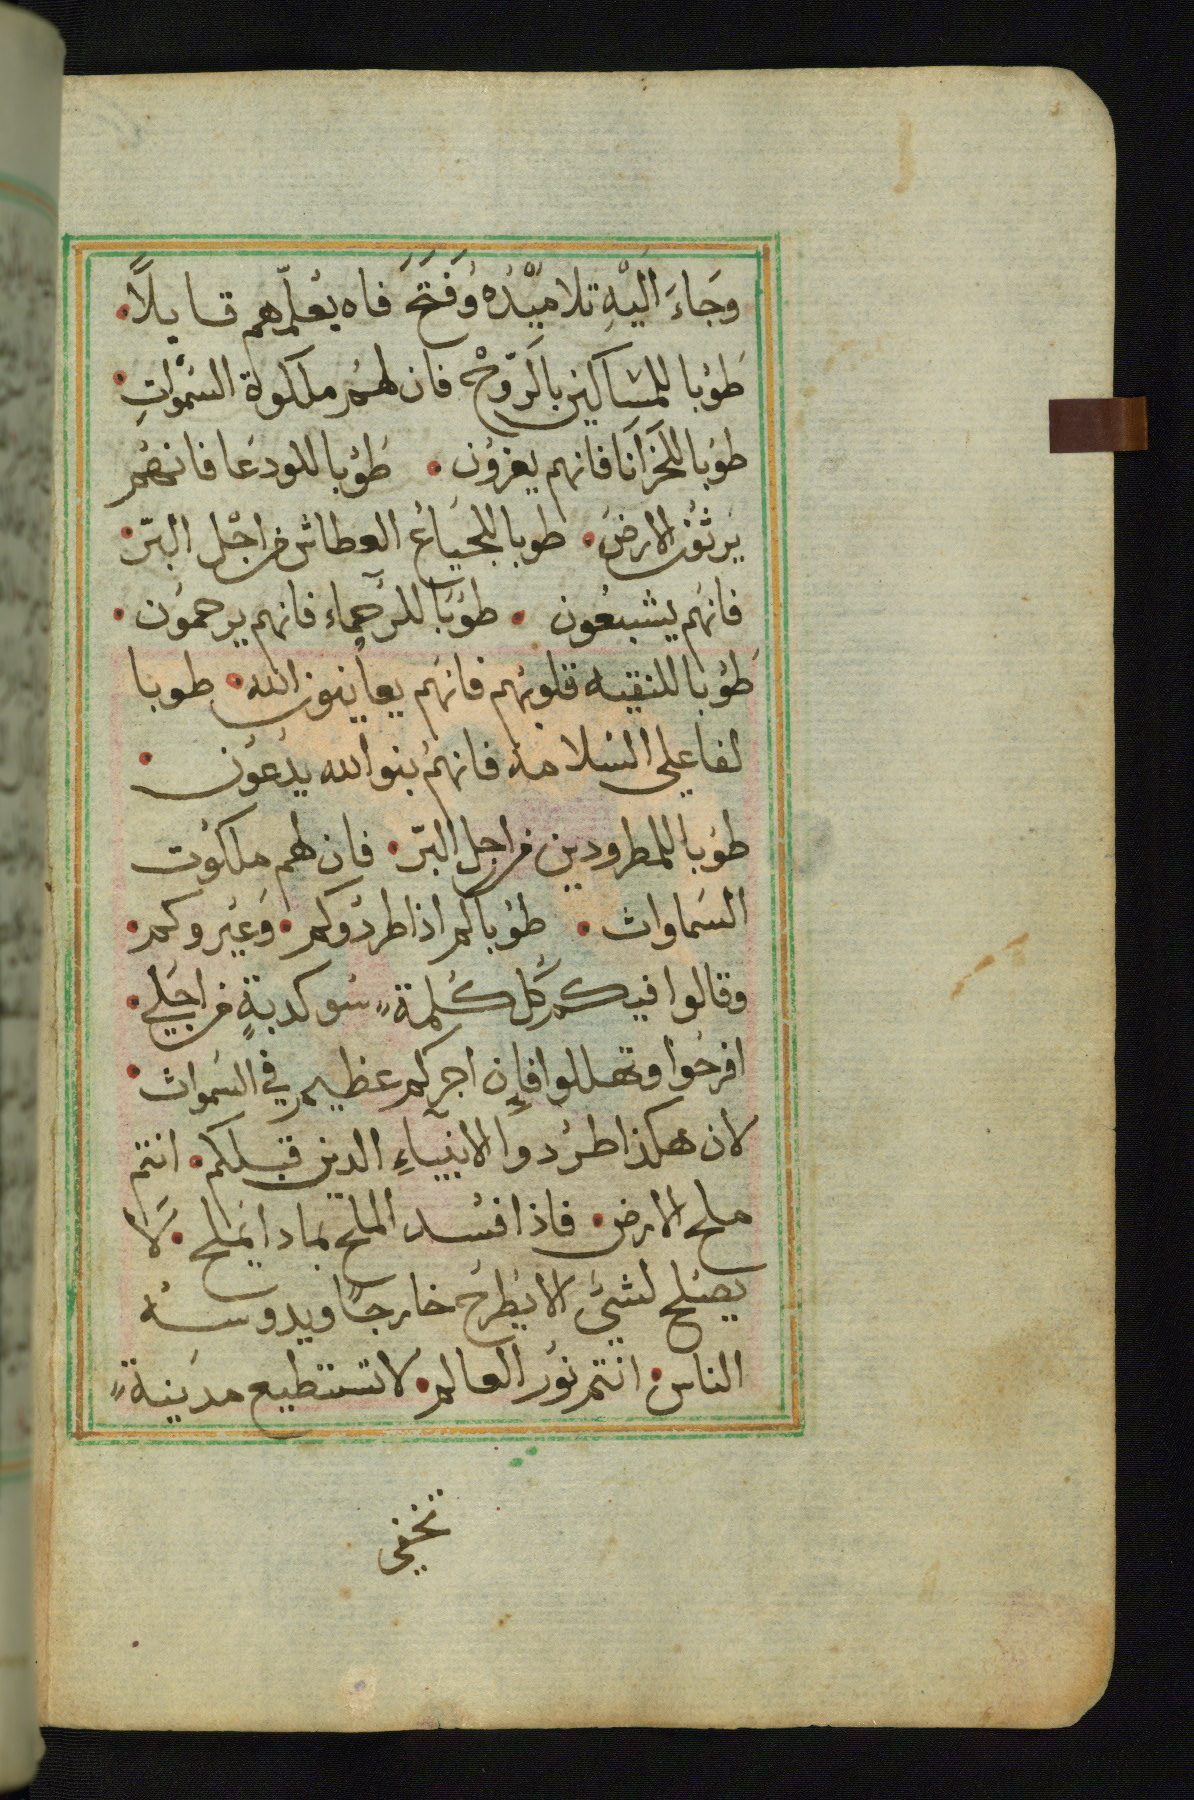 وَجَاءَ اليْهِ تلاميْدُه وَفَتَحَ فاه يعُلّمهم قايلاً.
طوُبا للمسَاكين بالرّوحْ فان لهُمر ملكوة السَموَاتِ.
طوُبا للحَزانَا فانهم يعزوُن. طَوُبا للودعَا فانهُم
يَرثوُن الارضَ. طوبا للجيَاعُ العطاش من اجْل البّر.
فانهَم يشبعُون. طوُبَا للرّحماء فانهم يرحموَن.
طَوُبا للنقيه قلوبهُم فانهَم يعاينون الله. طوبا
لفاعلي السَلامه فانهمُ بنو الله يدُعوُن.
طوُبا للمطرودين من اجل البّر. فان لهم ملكوُت
السَماواث. طوُبا لكم اذا طردُوكم. وَعَيروكم.
وقالوا فيكم كُل كَلمة سُو كدبةٍ من اجَلي.
افرحَوُا وتهللوا فإن اجركم عظيم في السَمواث.
لان هكذا طرُدوا الانبيآءِ الدين قبلكم. انتم
ملح الارض. فاذا افسُد الملح بمادا يُملح. لَا
يصُلح لشيَئ الا يُطرَح خارجًا ويدوسهُ
الناس. انتم نوُر العالم. لا تستطيع مدَينة
تخفي